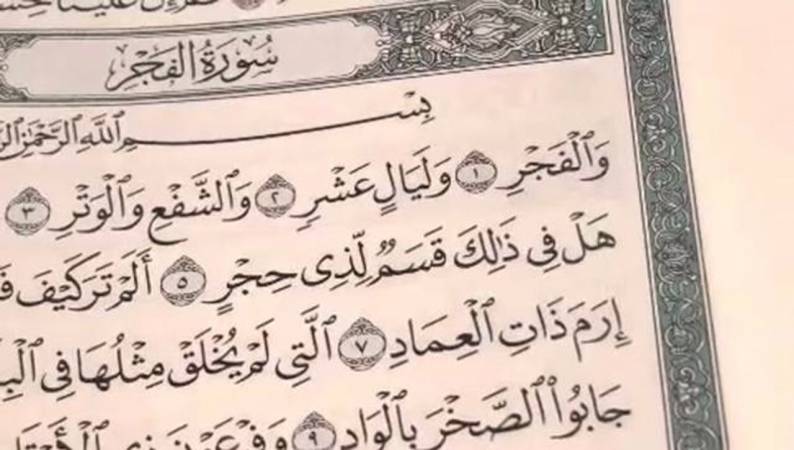 سُورَةُ الفَجْرِ
بِسْمِ ٱللَّهِ ٱلرَّحْمَٰنِ
وَٱلْفَجْرِ ١ وَلَيَالٍ عَشْرٍ ٢ وَٱلشَّفْعِ وَٱلْوَتْرِ ٣
هَلْ فِى ذَٰلِكَ قَسَمٌ لِّذِى حِجْرٍ ٥ أَلَمْ تَرَ كَيْفَ
إِرَمَ ذَاتِ ٱلْعِمَادِ ٧ ٱلَّتِى لَمْ يُخْلَقْ مِثْلُهَا فِى
جَابُوا۟ ٱلصَّخْرَ بِٱلْوَادِ ٩ وَفِرْعَوْنَ ذِى